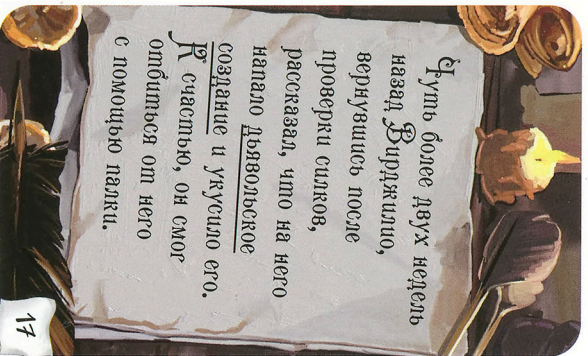 Чуть более двух недель
назад Вирджилио,
вернувшись после
проверки силков,
рассказал, что на него
напало дьявольское
создание и укусило его.
К счастью, он смог
отбиться от него
с помощью палки.
17